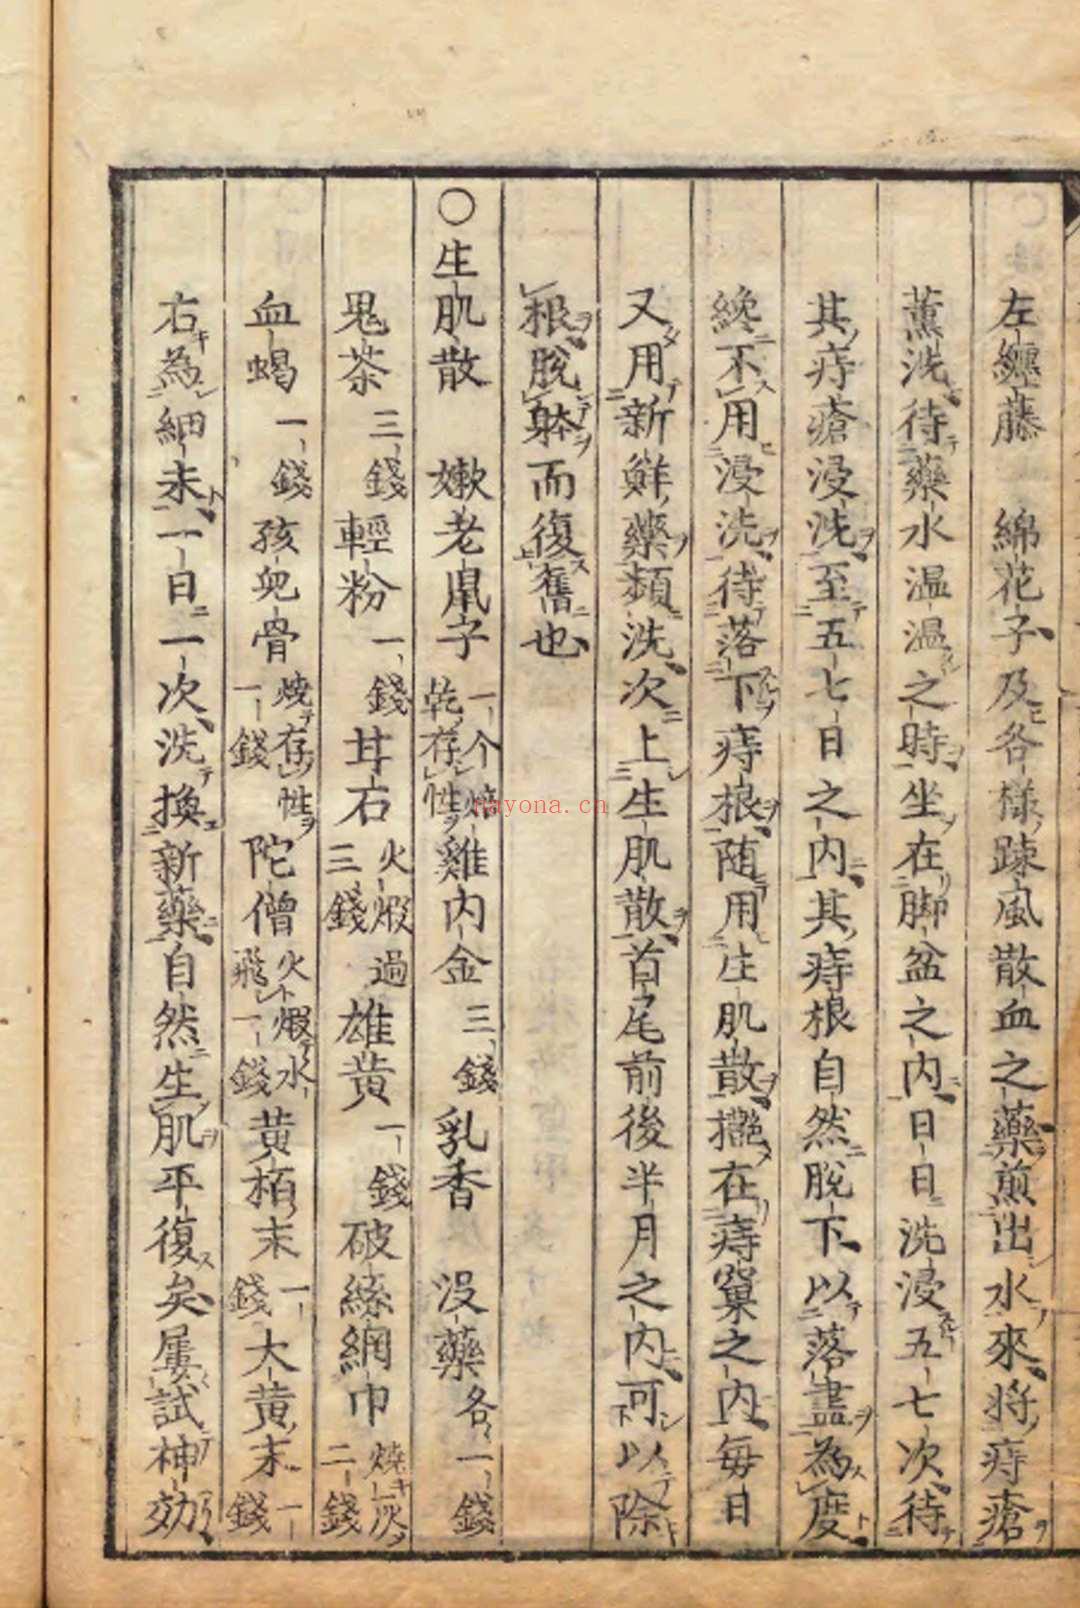 左纏藤　綿花子及各樣踈風散血之藥煎出水來將痔瘡
薫洗待藥水温温之時坐在脚盆之内日日洗浸五七次待
其痔瘡浸洗至五七日之内其痔根自然脫下以落盡為度
纔不用浸洗待落下痔根随用生肌散摻在痔窠之内毎日
又用新鮮藥類洗次上生肌散首尾前後半月之内可以除
根脫躰而復舊也
〇生肌散　嫩老鼠子一个焙乾存性雞内金三錢乳香　没藥各一錢
鬼茶三錢輕粉一錢甘石火煆過三錢雄黄一錢破絲網巾燒灰二錢
血蝎一錢孩兒骨燒存性一錢陀僧火煆水飛一錢黄栢末一錢大黄末一錢
右為細末一日一次洗換新藥自然生肌平復矣屢試神効
nayona.cn